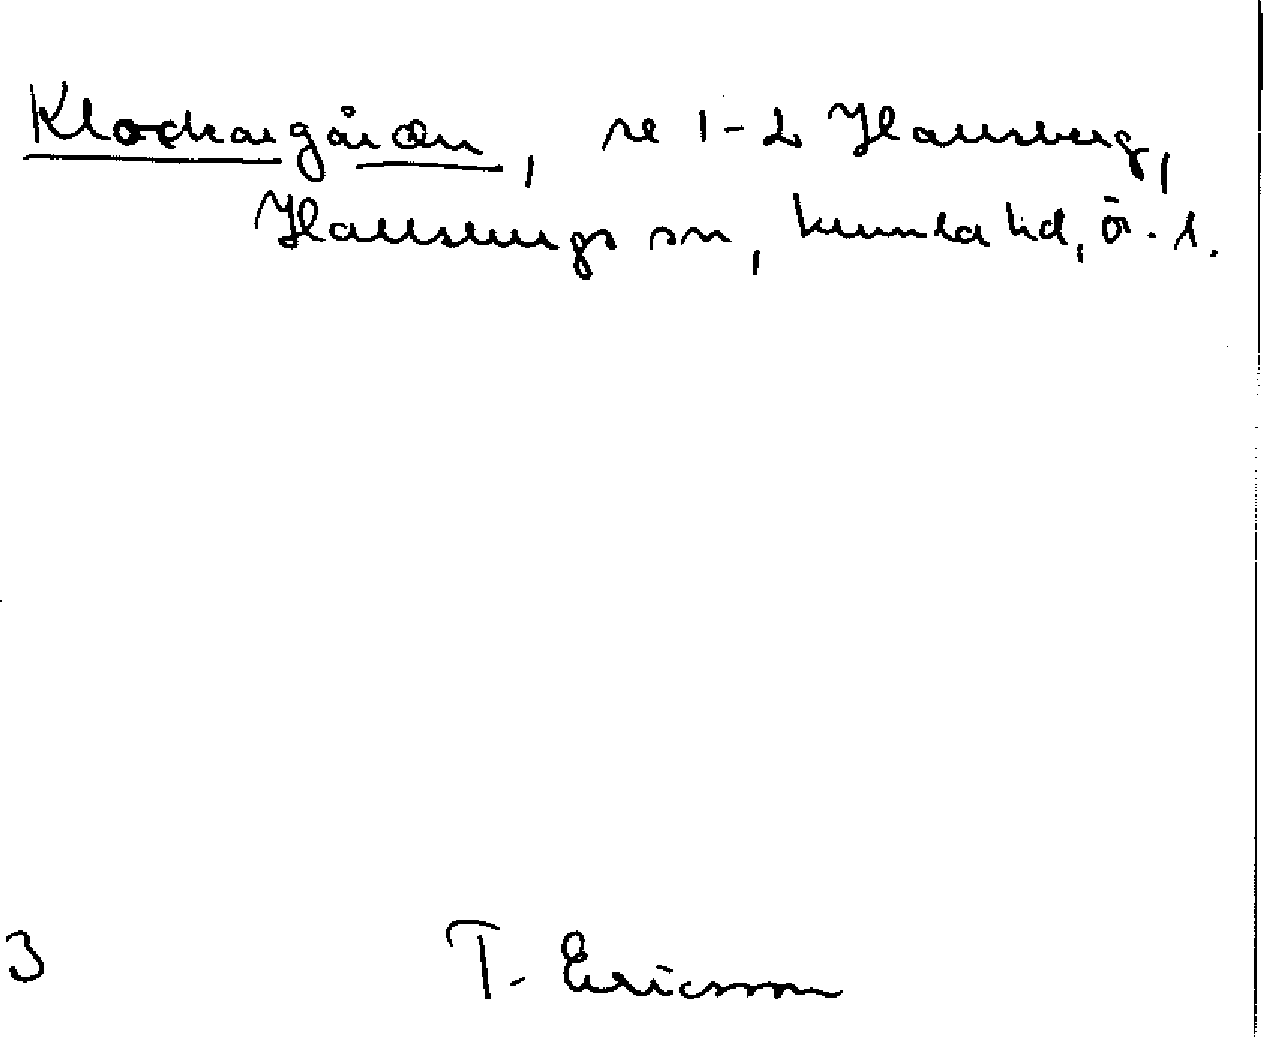 Klockargården, se 1-2 Hallsberg,
Hallsbergs sn, Kumla hd, Ör. l.
3 T. Ericsson